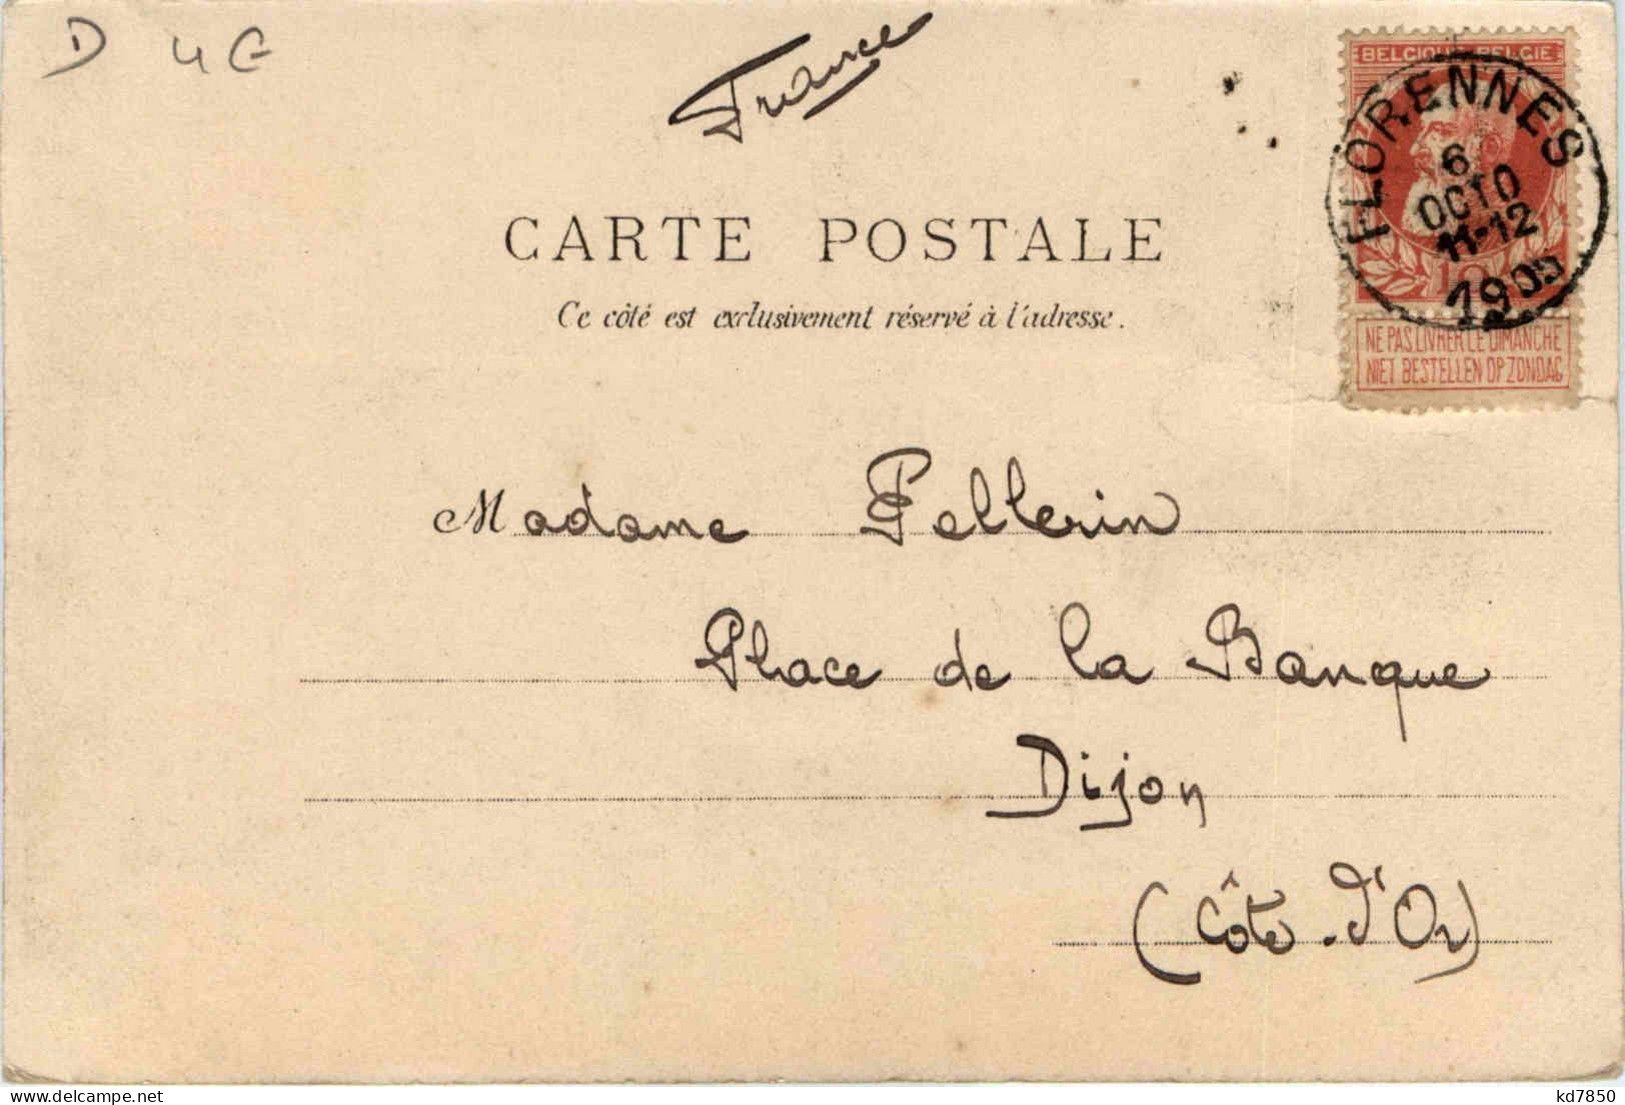 D 4 E
France
BELGIQUE BELGIE
FLORENNES
6
OCTO
11-12
1905
10
NE PAS LIVRER LE DIMANCHE
NIET BESTELLEN OP ZONDAG
CARTE POSTALE
Ce côté est exclusivement réservé à l'adresse.
Madame Pellerin
Place de la Banque
Dijon
(Côte-d'Or)
delcampe.net
kd7850